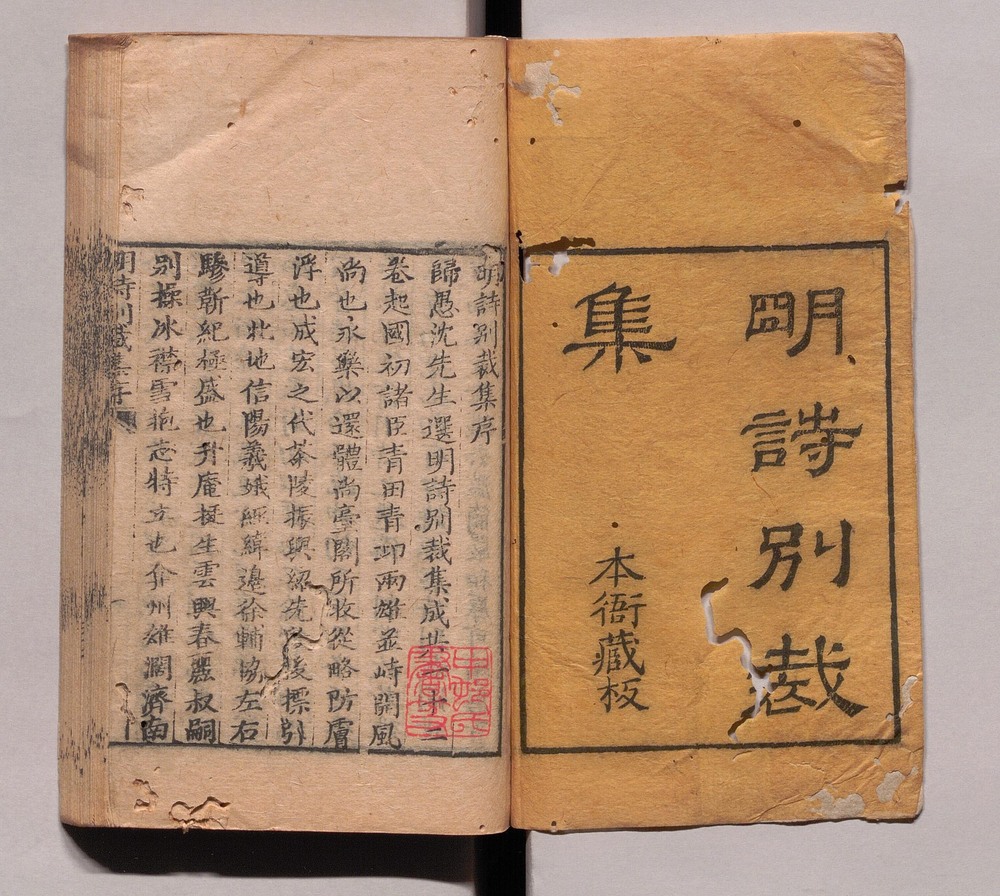 明詩別裁
集
本衙藏板
明詩别裁集序
歸愚沈先生選明詩别裁集成共一十二
卷起國初諸臣青田青邱兩雄並峙開風
尚也永樂以還體尚臺閣所收從略防膚
浮也成宏之代茶陵振興綿先啓後標引
導也北地信陽羲娥經緯邊徐輔協左右
驂靳紀極盛也升庵挺生雲興春麗叔嗣
别操冰襟雪抱志特立也弇州雄濶濟南
明詩别裁集序